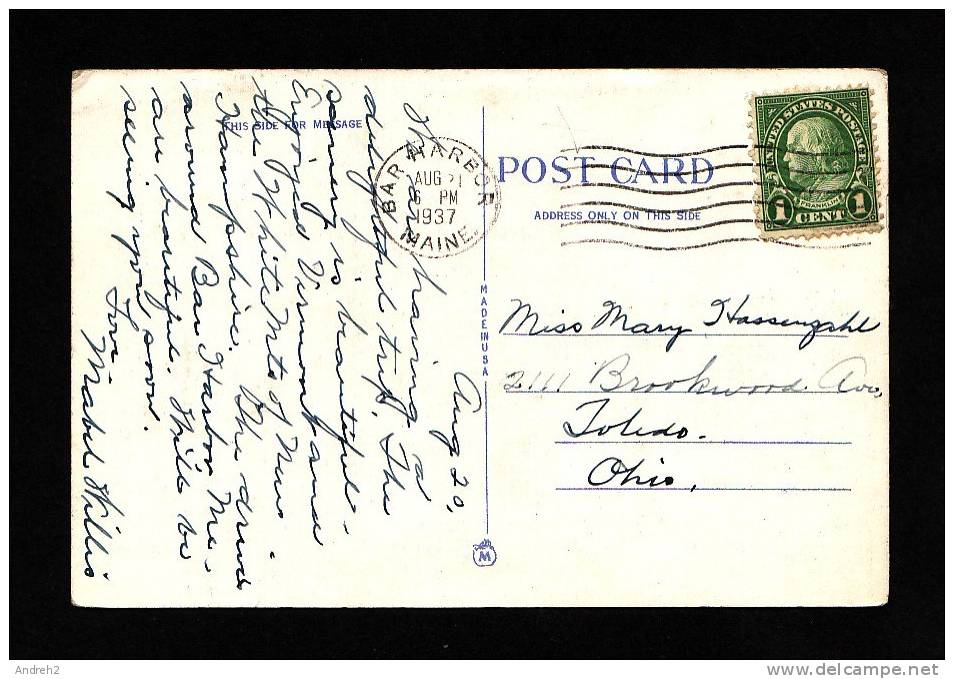 THIS SIDE FOR MESSAGE
Aug 20,
having a
delightful trip. The
scenery is beautiful -
Enjoyed Vermont and
the White Mts of New
Hampshire. The drives
around Bar Harbor Me -
are beautiful. Will be
seeing you soon.
Love
Mabel Willis
BAR HARBOR
AUG 21
6 PM
1937
MAINE.
POST CARD
ADDRESS ONLY ON THIS SIDE
UNITED STATES POSTAGE
FRANKLIN
1 CENT 1
MADE IN USA
M
Miss Mary Hassenzahl
2111 Brookwood Ave,
Toledo.
Ohio.
Andreh2
www.delcampe.net